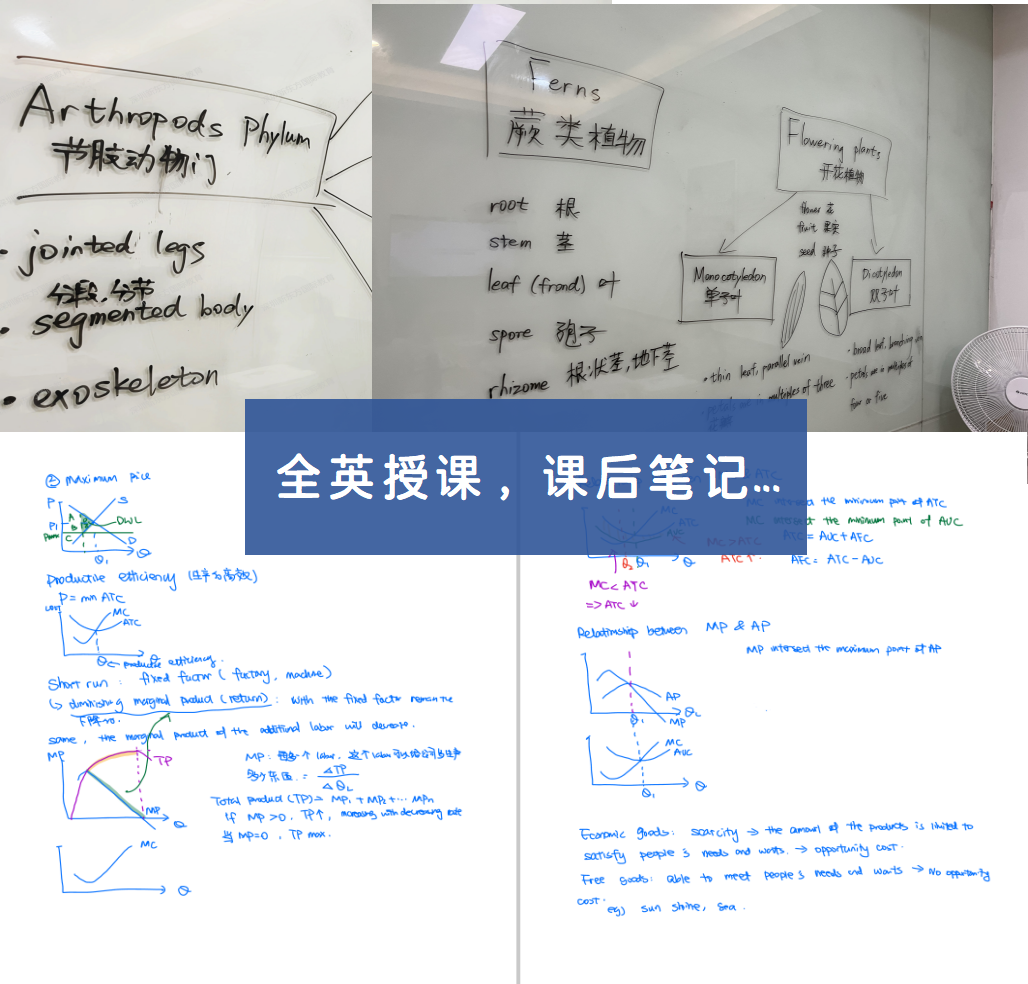 Arthropods Phylum
节肢动物门
• jointed legs
分段,分节
• segmented body
• exoskeleton
Ferns
蕨类植物
root 根
stem 茎
leaf (frond) 叶
spore 孢子
rhizome 根状茎,地下茎
Flowering plants
开花植物
flower 花
fruit 果实
seed 种子
Monocotyledon
单子叶
Dicotyledon
双子叶
• thin leaf, parallel vein
• petals are in multiples of three
• broad leaf, branching
• petals are in multiples of
four or five
全英授课，课后笔记...
② maximum price
P
S
P1
A
B
C
DWL
Pmax
D
Q1
Q
Productive efficiency (生产高效)
P = min ATC
MC
ATC
Q ← productive efficiency.
Short run: fixed factor (factory, machine)
↳ diminishing marginal product (return): with the fixed factor remain the
下降的.
same, the marginal product of the additional labor will decrease.
MP
TP
MP
Q
MP: 每多一个labor, 这个labor可以给公司多生产
多少东西. = △TP
△QL
Total product (TP) = MP1 + MP2 + ... MPn
if MP > 0, TP↑, increasing with decreasing rate
当 MP=0, TP max.
MC
Q
MC intersect the minimum point of ATC
MC intersect the minimum point of AUC
MC
ATC
Q
MC > ATC
ATC↑.
ATC = AUC + ATC
AFC = ATC - AUC
MC < ATC
=> ATC ↓
Relationship between MP & AP
MP intersed the maximum point of AP
AP
MP
QL
Q1
MC
AUC
Q1
Q
Economic goods: scarcity → the amount of the products is limited to
satisfy people's needs and wants. → opportunity cost.
Free goods: able to meet people's needs and wants → No opportunity
cost.
eg) sun shine, sea.